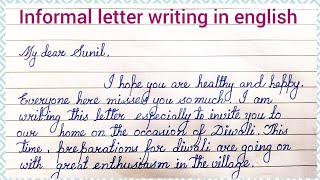 Informal letter writing in english
My dear Sunil,
I hope you are healthy and happy.
Everyone here missed you so much. I am
writing this letter especially to invite you to
our home on the occasion of Diwali. This
time, preparations for diwali are going on
with great enthusiasm in the village.